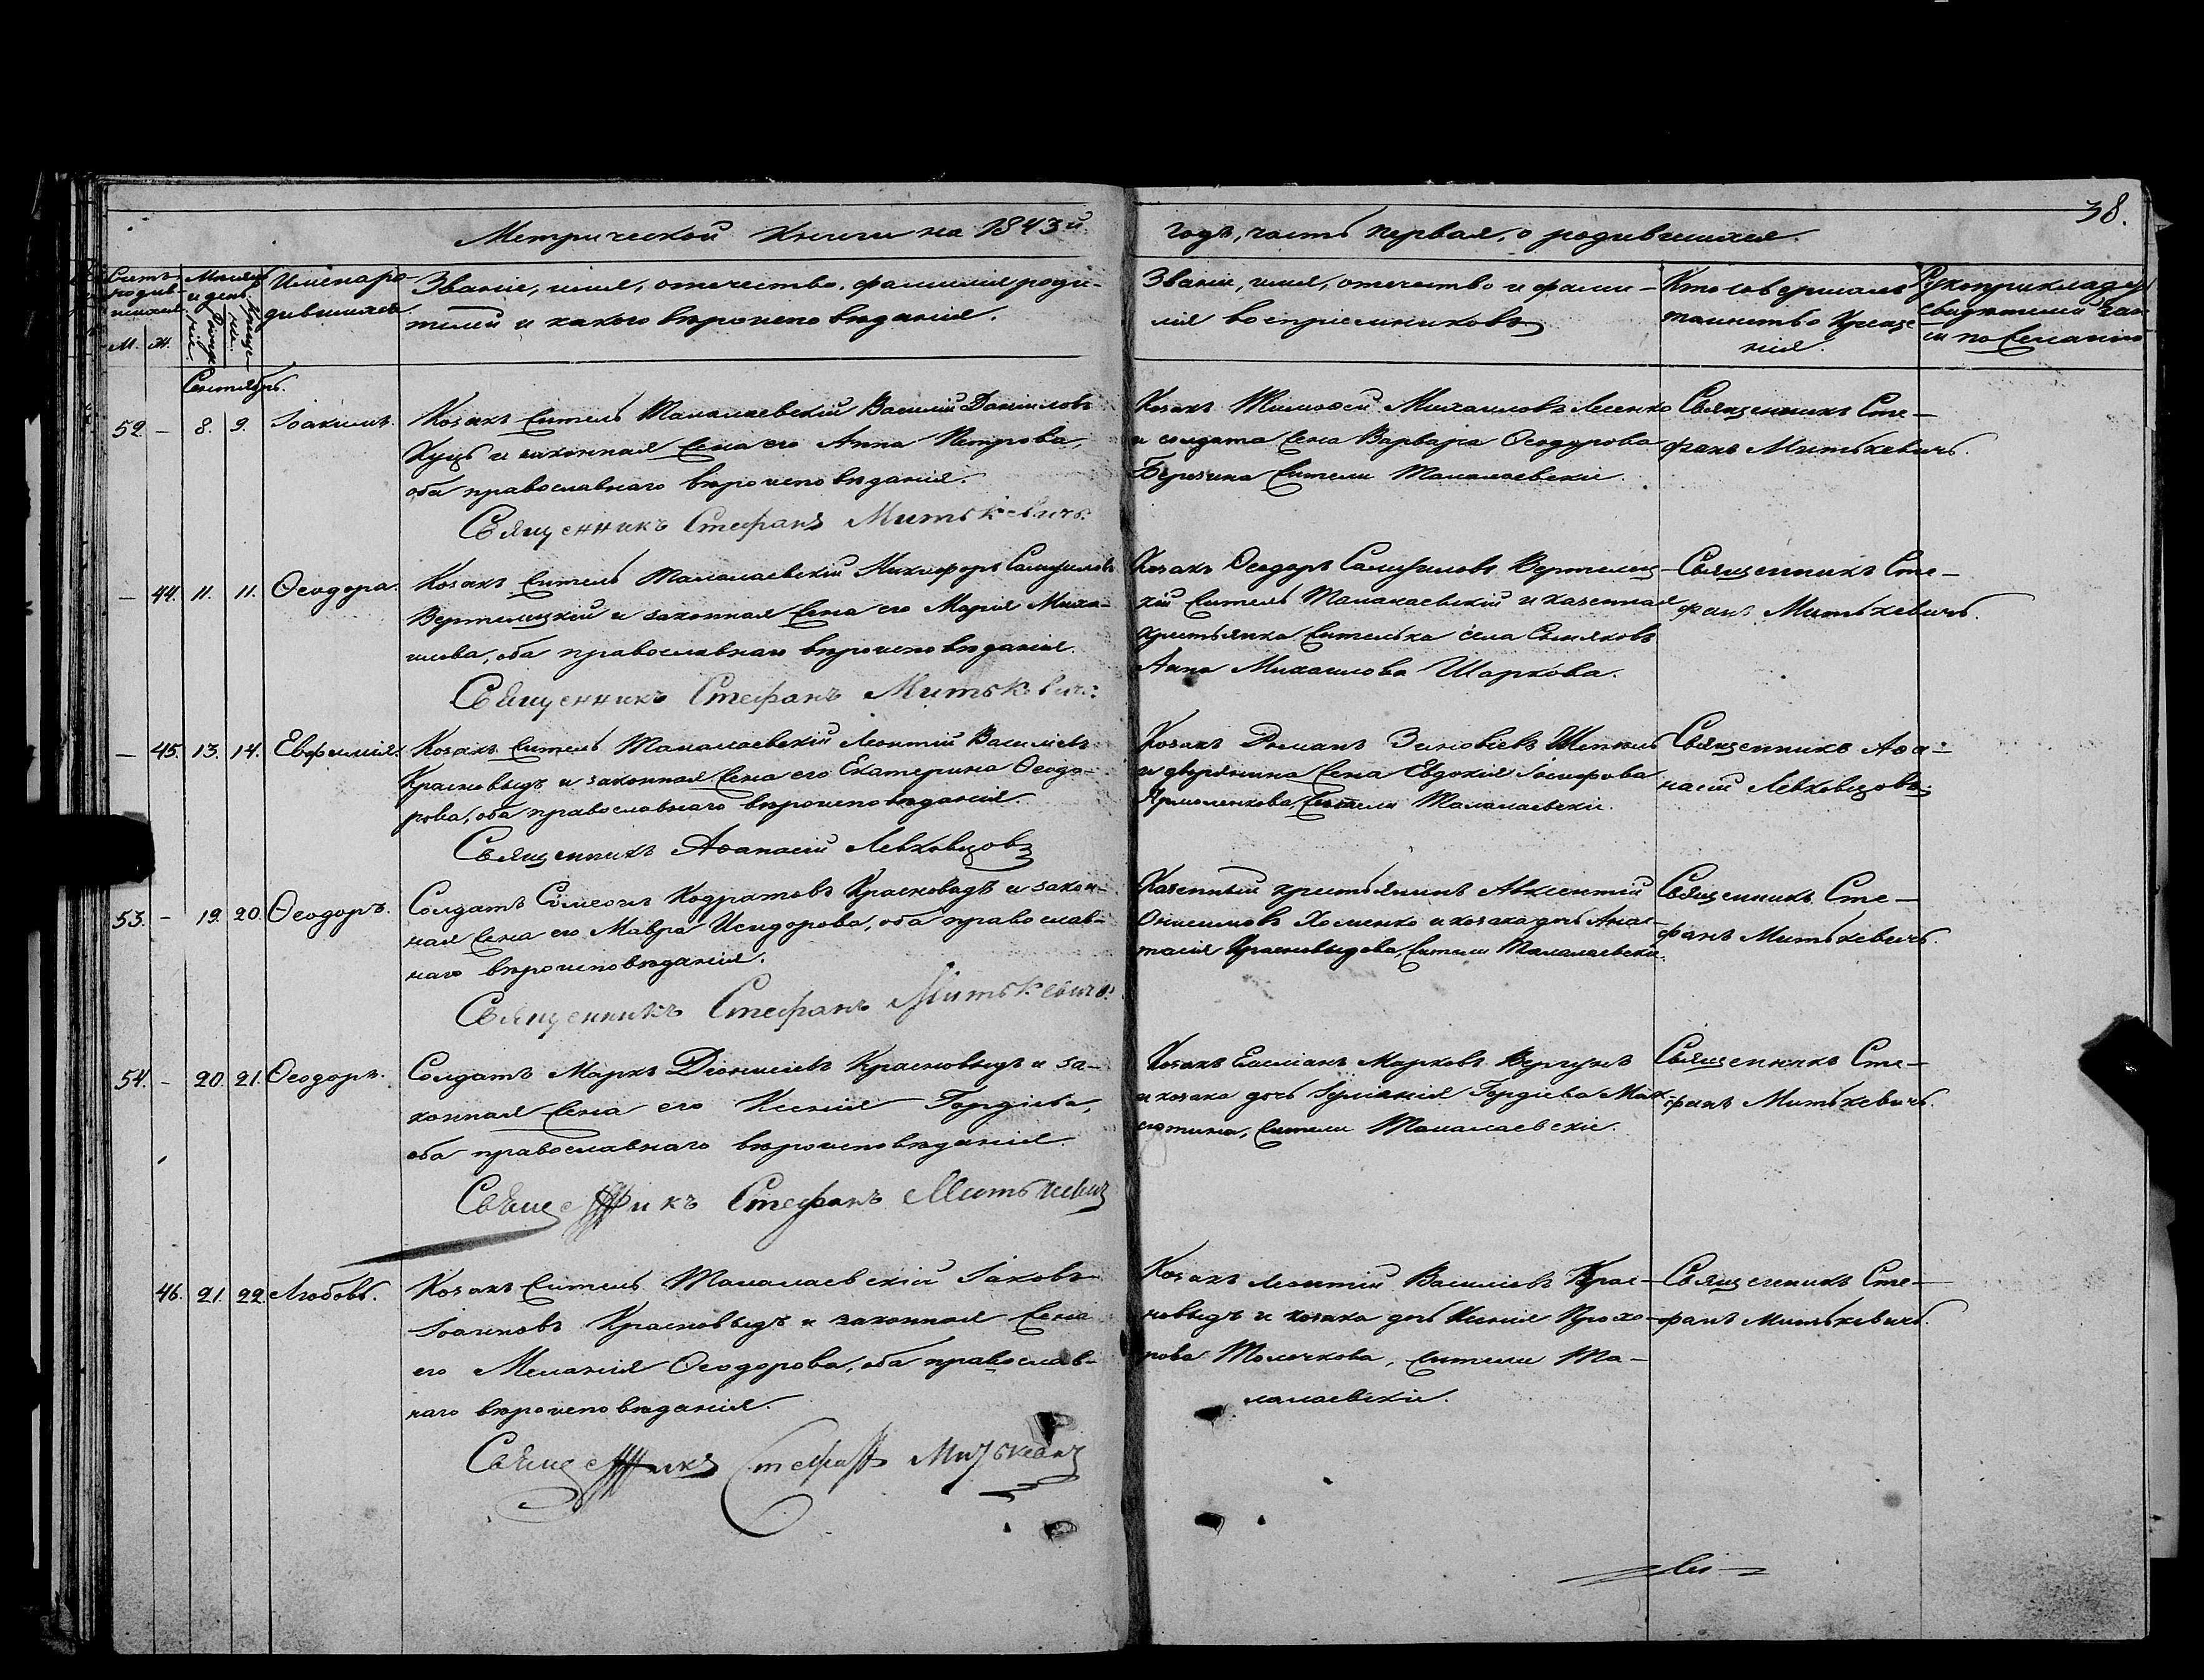 38.
Метрической Книги на 1843й
годъ, часть первая, о родившихся.
Счетъ родив-шихся.
М. Ж.
Месяцъ и день.
Рожде-нія. Креще-нія.
Имена ро-
дившихся.
Званіе, имя, отечество, фамилія роди-
телей и какого вѣроисповѣданія.
Званіе, имя, отечество и фами-
лія воспріемниковъ
Кто совершалъ
таинство Креще
нія.
Рукоприкладст
свидѣтелей
по желанію
Сентябрь.
52. — 8. 9. Іоакимъ.
Козакъ житель Талалаевскій Василій Даниловъ
Куцъ и законная жена его Анна Петрова,
оба православнаго вѣроисповѣданія.
Священникъ Стефанъ Митькевичъ.
Козакъ Тимофей Михаиловъ Лесенко
и солдата жена Варвара Ѳеодорова
Березина жители Талалаевскіе.
Священникъ Сте-
фанъ Митькевичъ.
— 44. 11. 11. Ѳеодора.
Козакъ житель Талалаевскій Никифоръ Самуиловъ
Вертелецкій и законная жена его Марія Миха-
илова, оба православнаго вѣроисповѣданія.
Священникъ Стефанъ Митькевичъ.
Козакъ Ѳеодоръ Самуиловъ Вертелец-
кій житель Талалаевскій и казенная
крестьянка жителька села
Анна Михаилова Шаркова.
Священникъ Сте-
фанъ Митькевичъ.
— 45. 13. 14. Евфимія.
Козакъ житель Талалаевскій Леонтій Василіевъ
Красновыдъ и законная жена его Екатерина Ѳеодо-
рова, оба православнаго вѣроисповѣданія.
Священникъ Аѳанасій Левковцовъ
Козакъ Романъ Зиновіевъ
и дворянина жена Евдокія Іосифова
Ярмоленкова, жители Талалаевскіе.
Священникъ Аѳа-
насій Левковцовъ.
53. — 19. 20. Ѳеодоръ.
Солдатъ Сѵмеонъ Кодратовъ Красновыдъ и закон-
ная жена его Мавра Исидорова, оба православ-
наго вѣроисповѣданія.
Священникъ Стефанъ Митькевичъ.
Казенный крестьянинъ Авксентій
Онисимовъ Хоменко и козака дочь Анас-
тасія Красновыдова, жители Талалаевскіе.
Священникъ Сте-
фанъ Митькевичъ.
54. — 20. 21. Ѳеодоръ.
Солдатъ Маркъ Діонисіевъ Красновыдъ и за-
конная жена его Ксенія Гордіева,
оба православнаго вѣроисповѣданія.
Священникъ Стефанъ Митькевичъ
Козакъ Емеліанъ Марковъ Вергунъ
и козака дочь Іуліанія Гордіева
жители Талалаевскіе.
Священникъ Сте-
фанъ Митькевичъ.
46. 21. 22. Любовь.
Козакъ житель Талалаевскій Іаковъ
Іоанновъ Красновыдъ и законная жена
его Меланія Ѳеодорова, оба православ-
наго вѣроисповѣданія.
Священникъ Стефанъ Митькевичъ
Козакъ Леонтій Василіевъ Крас-
новыдъ и козака дочь Ксенія Прохо-
рова Толочкова, жители Та-
лалаевскіе.
Священникъ Сте-
фанъ Митькевичъ.